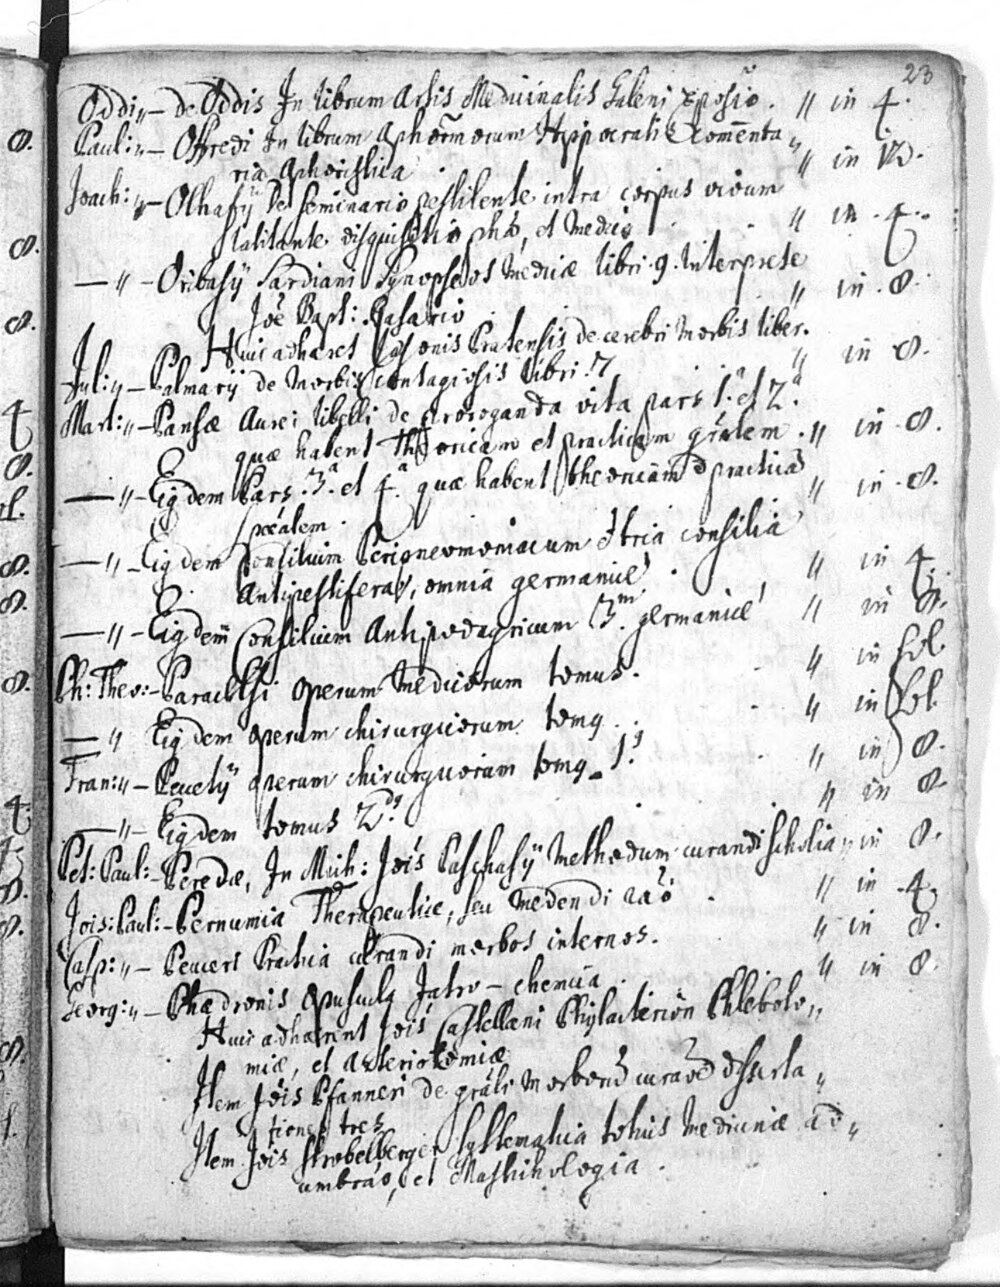 23
Oddi„ – de Oddis In librum Artis Medicinalis Galeni Exposiõ. „ in 4.
Paul: „ – Offredi In librum Aphorm̃orum Hyppocratis Com̄enta„
ria Aphoristica „ in 12.
Joach: „ – Olhafÿ De seminario pestilente intra corpus vivum
latitante disquisitio phã, et Medica „ in 4.
— „ – Oribasÿ Sardiani Synopseos Medicæ libri 9. Interprete
Joẽ Bapt: Rasario. „ in 8.
Huic adhæret Jasonis Pratensis de cerebri Morbis liber.
Jul: „ – Palmarÿ de Morbis contagiosis libri 7 „ in 8.
Mart: „ – Pansæ Aurei libelli de proroganda vita pars 1ª et 2ª
quæ habent Theoricam et practicam grãlem. „ in 8.
— „ – Eiqdem Pars 3ª et 4ª quæ habent theoricam & practicã
spẽalem. „ in 8.
— „ – Eiqdem Consilium Peripneumoniacum & tria consilia
Antipestifera, omnia germanicè. „ in 4.
— „ – Eiqdem Consilium Antipodagricum 3m germanicè „ in 8.
Ph: Theo: – Paracelsi operum Medicorum tomus. „ in fol.
— „ Eiqdem operum chirurgicorum tomq. „ in fol.
Fran: „ – Peucetÿ operum chirurgicorum tomq 1q „ in 8.
— „ – Eiqdem tomus 2dq „ in 8.
Pet: Paul: – Peredæ, In Mich: Jois Paschasÿ Methodum curandi scholia „ in 8.
Jois: Paul: – Pernumia Therapeutice, seu Medendi raõ „ in 4.
Casp: „ – Peuceri Practica curandi morbos internos. „ in 8.
Georg: „ – Phædronis Opuscula Jatro-chemica. „ in 8.
Huic adhærent Jois Castellani Phylacterion Phleboto„
miæ, et Arteriotomiæ
Item Jois Pfanneri de grãli Morborũ curaõe disserta„
tiones tres
Item Jois Strobelbergeri Systematica totius Medicinæ ad„
umbraõ, et Mastichologia.